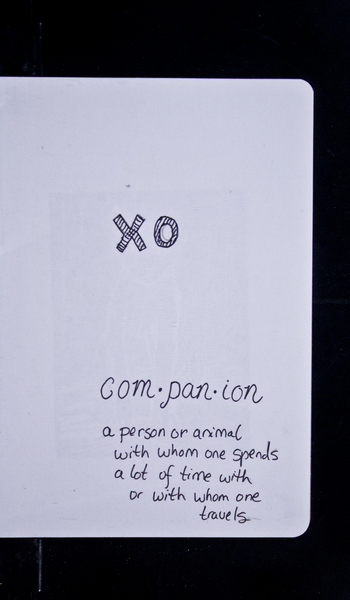 XO
com·pan·ion
a person or animal
with whom one spends
a lot of time with
or with whom one
travels